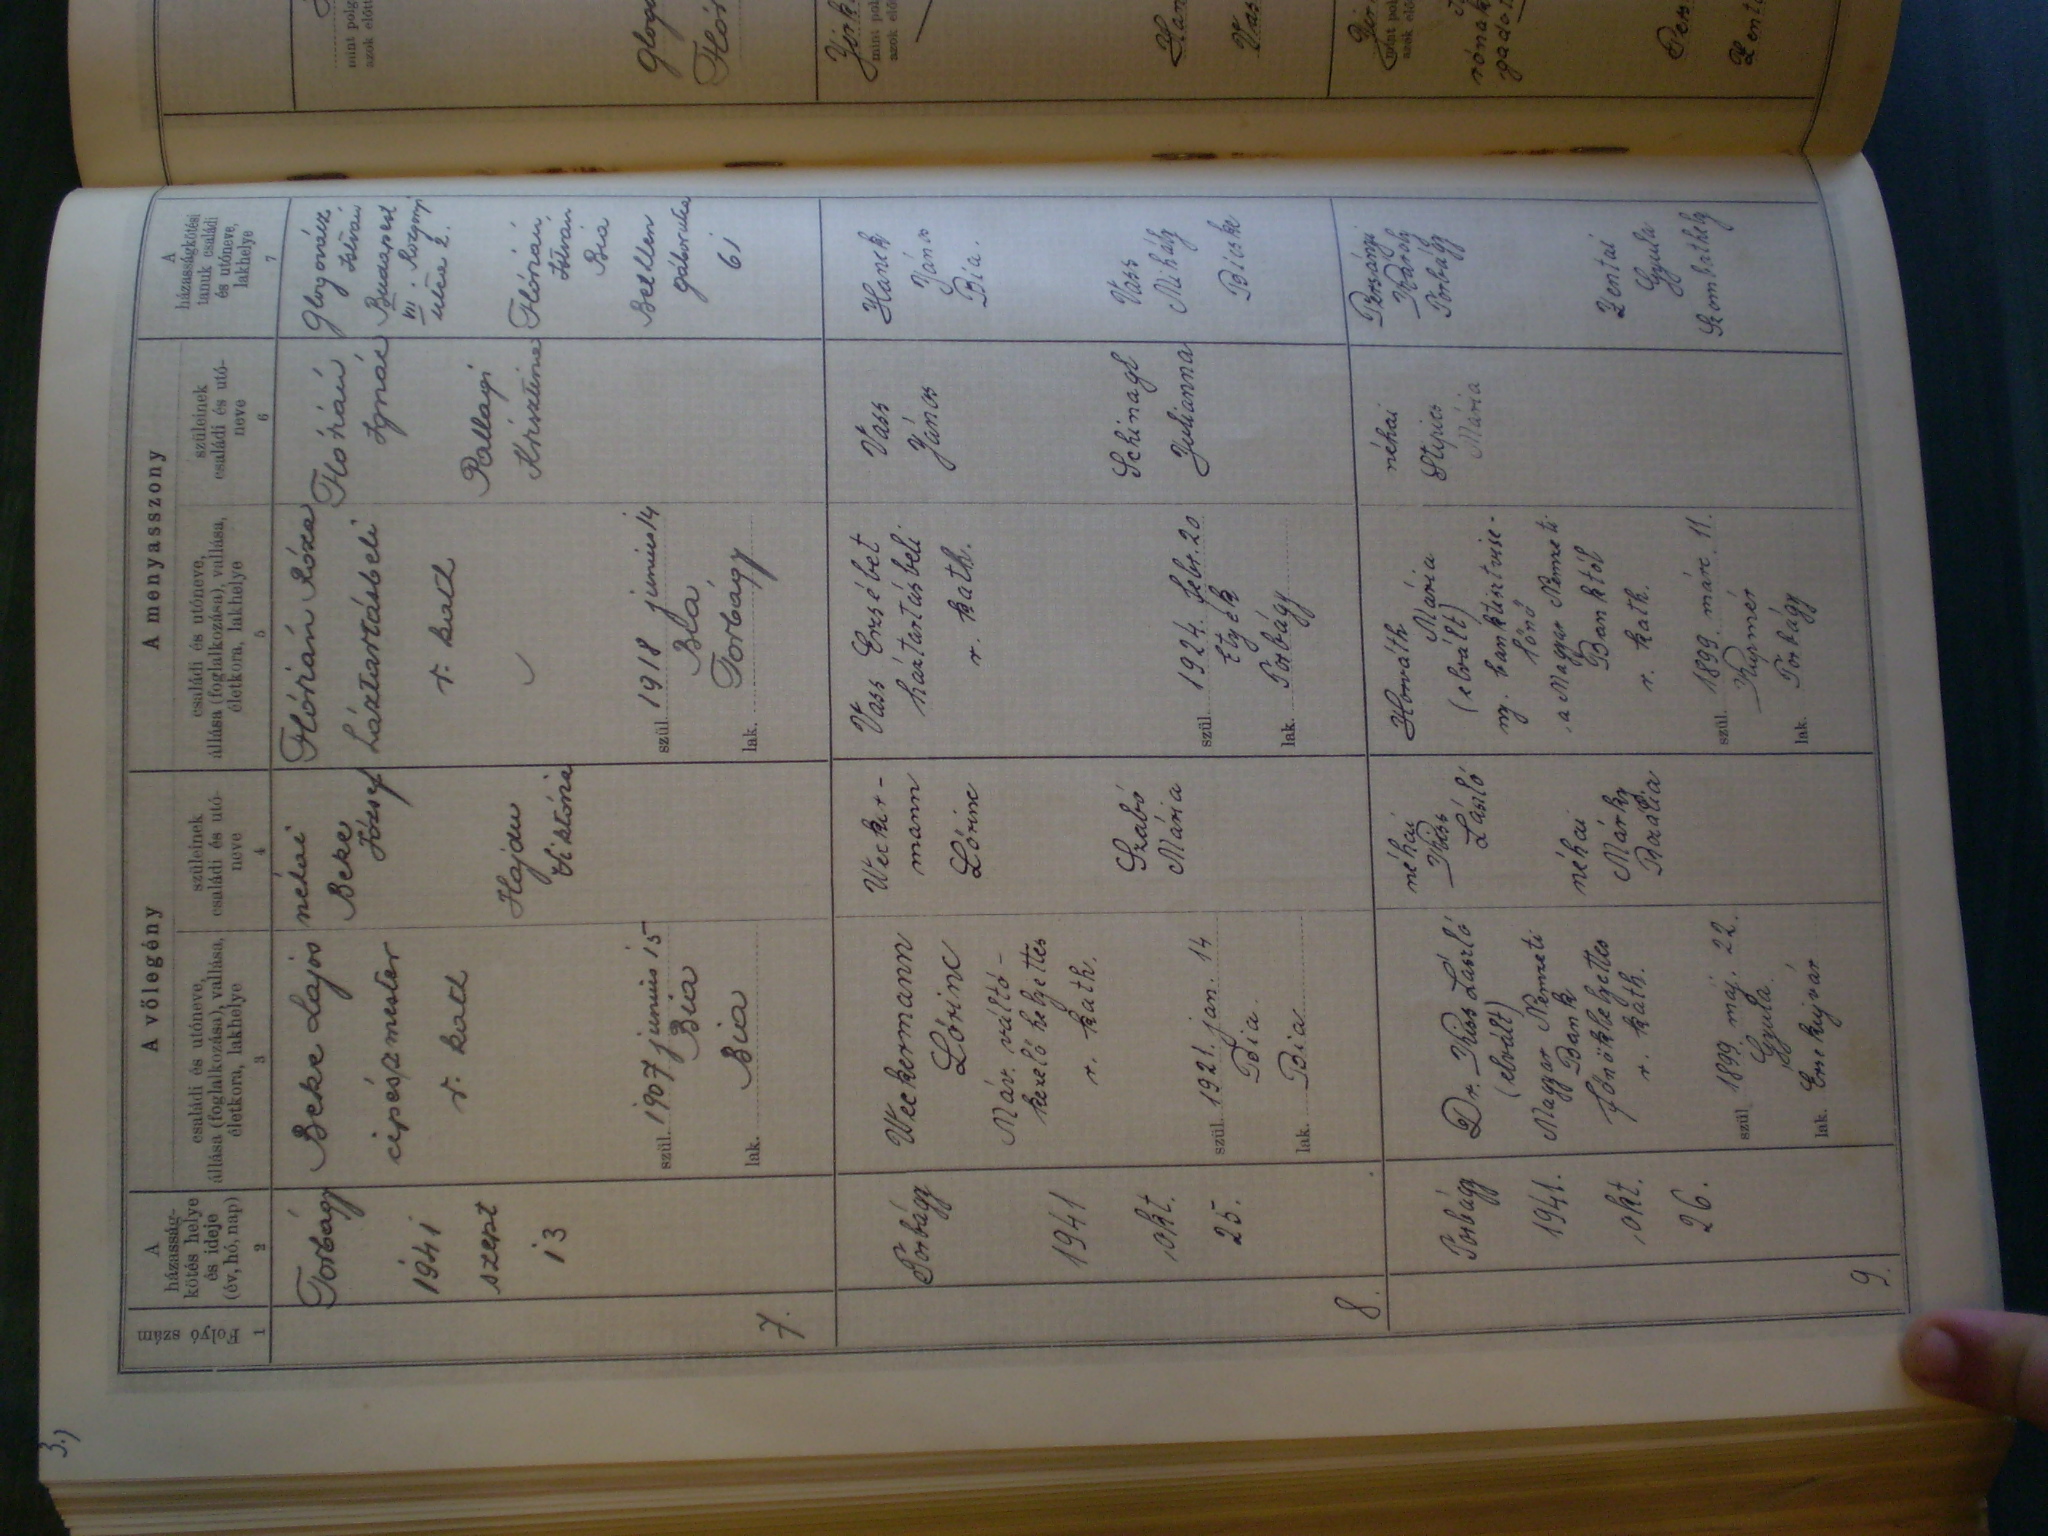 3.)
Folyó
szám
1
A
házasság-
kötés helye
és ideje
(év, hó, nap)
2
A vőlegény
családi és utóneve,
állása (foglalkozása), vallása,
életkora, lakhelye
3
szüleinek
családi és utó-
neve
4
A menyasszony
családi és utóneve,
állása (foglalkozása), vallása,
életkora, lakhelye
5
szüleinek
családi és utó-
neve
6
A
házasságkötési
tanuk családi
és utóneve,
lakhelye
7
7.
Torbágy
1941
szept
13
Beke Lajos
cipészmester
r. kath
szül. 1907 junius 15
Bia
Bia
lak.
néhai
Beke
József
Hajdu
Viktória
Flórián Róza
háztartásbeli
r. kath
szül. 1918 junius 14
Bia
Torbágy
lak.
Flórián
Ignác
Pallagi
Krisztina
István
Budapest
VI.
utca 2.
Flórián
István
Bia
Bethlen
Gáborutca
61
8.
Torbágy
1941
okt.
25.
Weckermann
Lőrinc
Máv. váltó-
kezelő helyettes
r. kath.
szül. 1921. jan. 14
Bia
lak. Bia
Wecker-
mann
Lőrinc
Szabó
Mária
Vass Erzsébet
háztartásbeli.
r. kath.
szül. 1924. febr. 20
Etyek
lak. Torbágy
Vass
János
Schinagl
Julianna
Hanek
János
Bia.
Vass
Mihály
Bicske
9.
Torbágy
1941.
okt.
26.
Dr. Kiss László
(elvált)
Magyar Nemzeti
Bank
főnökhelyettes
r. kath.
szül. 1899. máj. 22.
Gyula
lak. Érsekujvár
néhai
Kiss
László
néhai
Márky
Rozália
Horváth
Mária
(elvált)
ny. banktisztvise-
lőnő
a Magyar Nemzeti
Banktól
r. kath.
szül. 1899. márc. 11.
lak. Torbágy
néhai
Stipics
Mária
Károly
Torbágy
Zentai
Gyula
Szombathely
mint polg
azok előtt
Flór
mint pol
azok elő
Han
Vas
azok elő
Zent